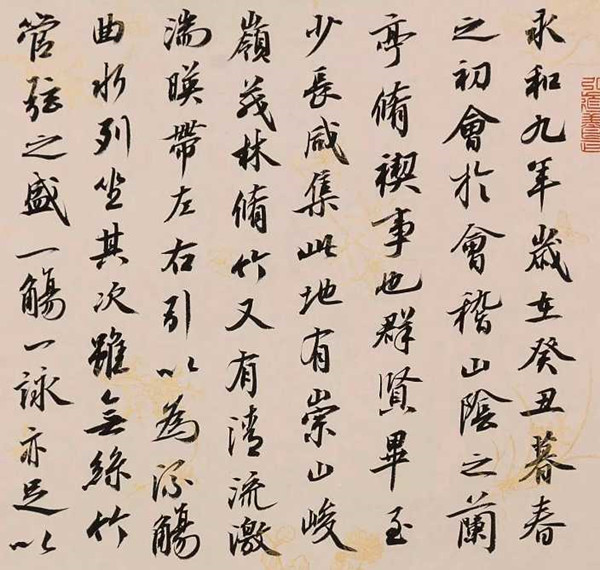 永和九年歲在癸丑暮春
之初會於會稽山陰之蘭
亭脩禊事也群賢畢至
少長咸集此地有崇山峻
嶺茂林脩竹又有清流激
湍暎帶左右引以為流觴
曲水列坐其次雖無絲竹
管弦之盛一觴一詠亦足以